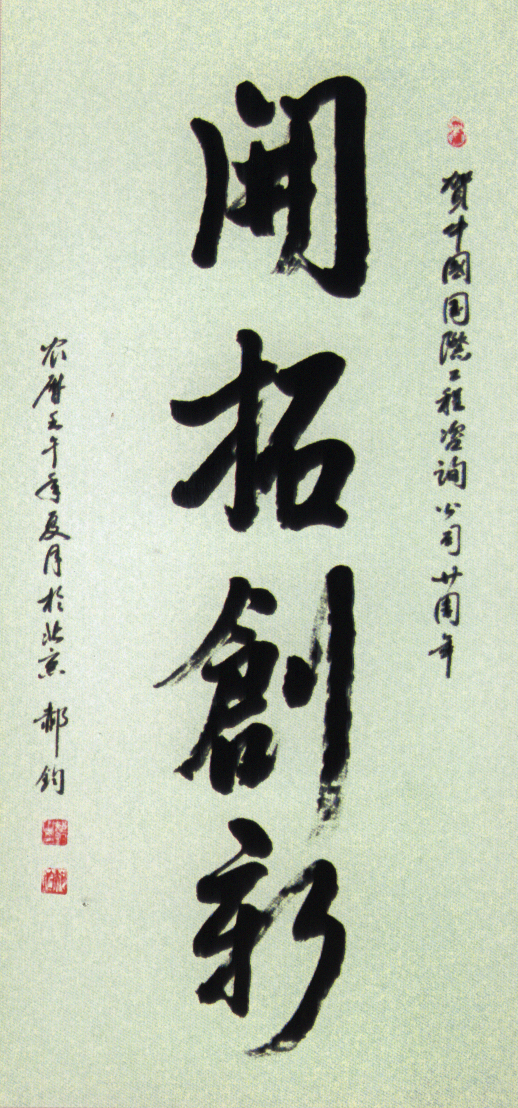 賀中國国際工程咨詢公司廿周年
開拓創新
农曆壬午年夏月於北京 郝鈞